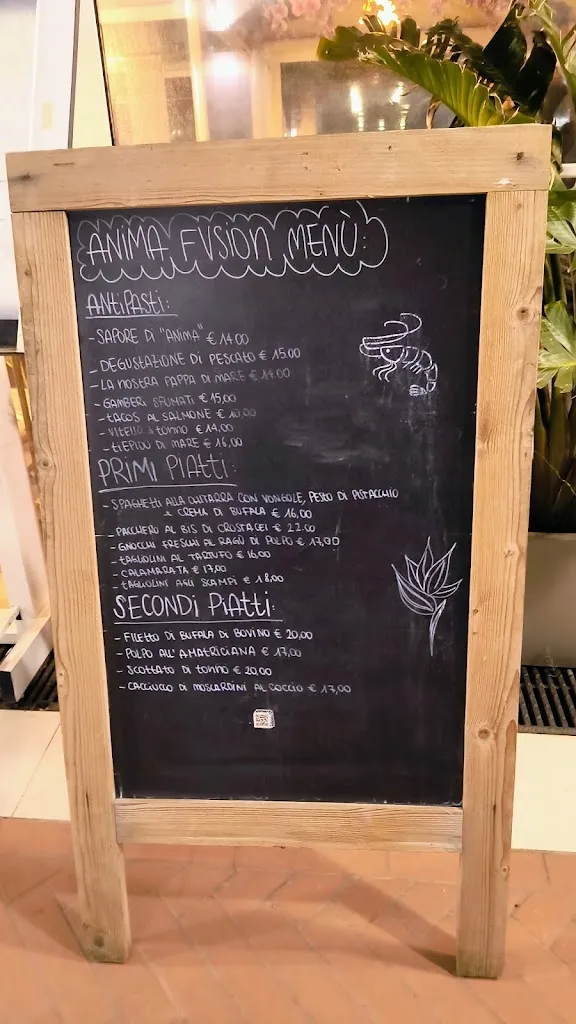 ANIMA FUSION MENÙ:
ANTIPASTI:
- SAPORE DI "ANIMA" € 14.00
- DEGUSTAZIONE DI PESCATO € 15.00
- LA NOSTRA PAPPA DI MARE € 14.00
- GAMBERI SFUMATI € 15,00
- TACOS AL SALMONE €
- VITELLO & TONNO € 14.00
- TIEPIDO DI MARE € 16.00
PRIMI PIATTI:
- SPAGHETTI ALLA CHITARRA CON VONGOLE, PESTO DI PISTACCHIO
E CREMA DI BUFALA € 16,00
- PACCHERO AL BIS DI CROSTACEI € 22.00
- GNOCCHI FRESCHI AL RAGÙ DI POLPO € 17,00
- TAGLIOLINI AL TARTUFO € 16.00
- CALAMARATA € 17.00
- TAGLIOLINI AGLI SCAMPI € 18,00
SECONDI PIATTI:
- FILETTO DI BUFALA DI BOVINO € 20,00
- POLPO ALL'AMATRICIANA € 17,00
- SCOTTATO DI TONNO € 20.00
- CACCIUCCO DI MOSCARDINI AL COCCIO € 17,00